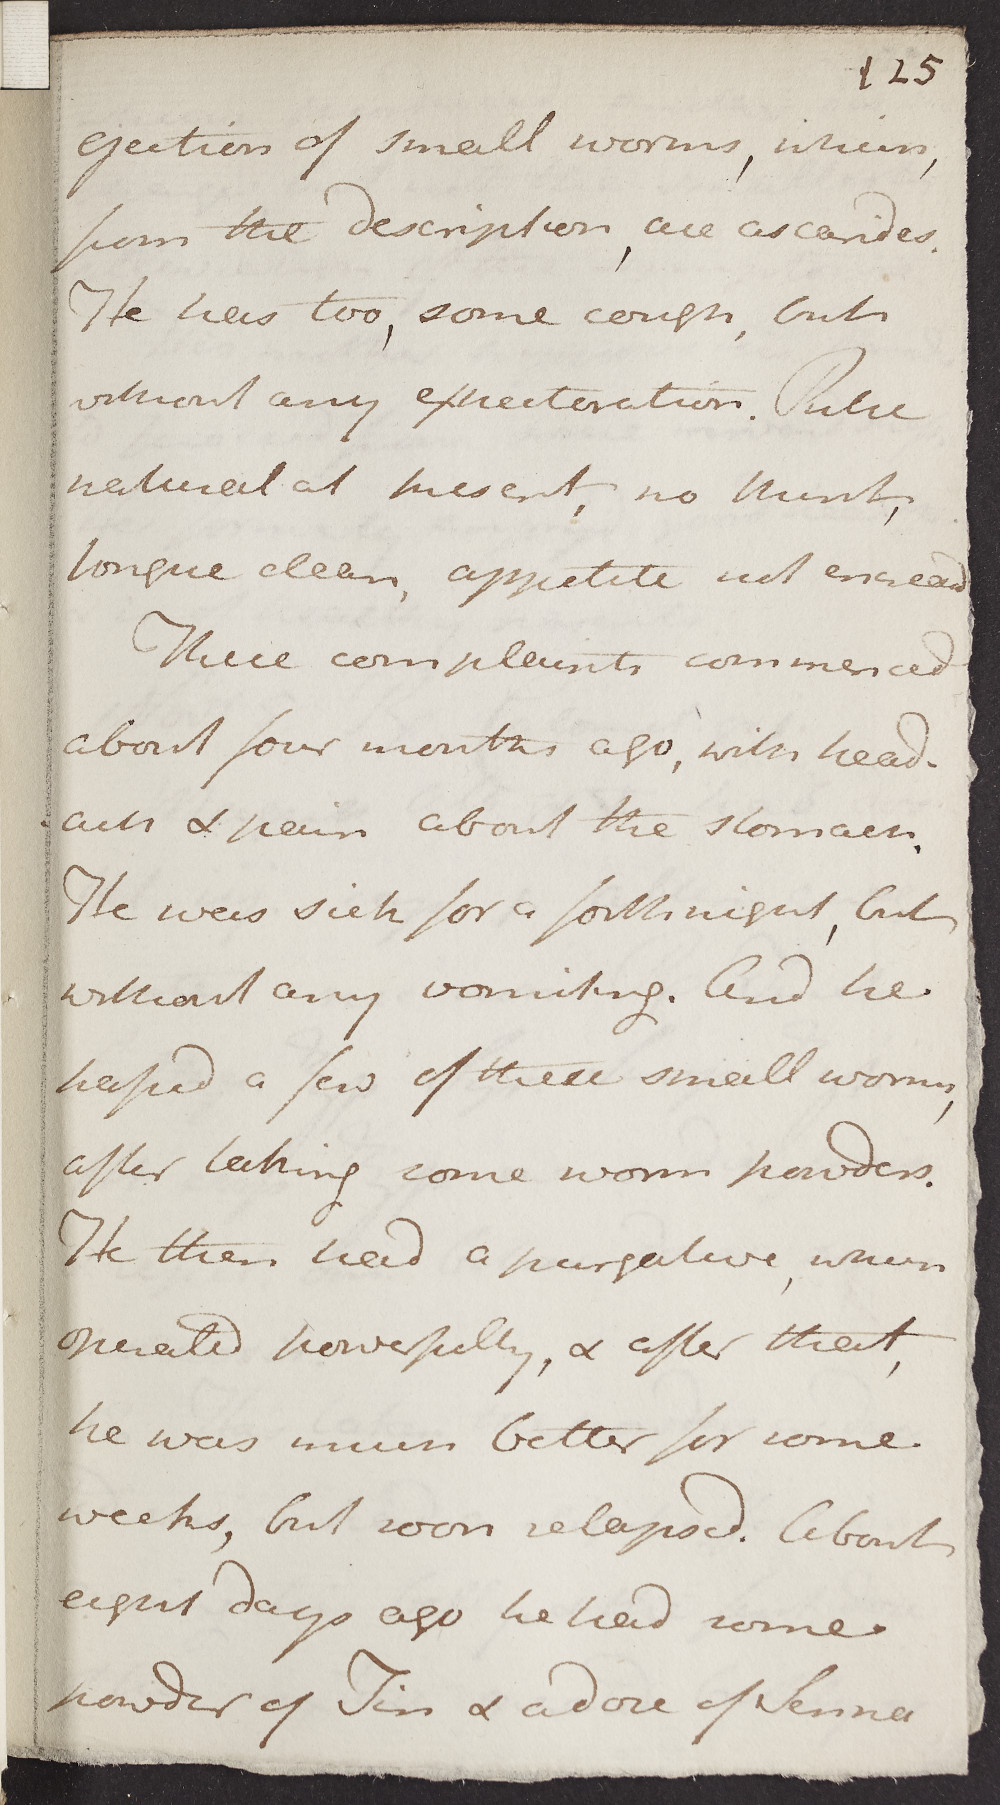 125
ejection of small worms, which,
from the description, are ascarides.
He has too, some cough, but
without any expectoration. Pulse
natural at present, no thirst,
tongue clean, appetite not encreasd
These complaints commenced
about four months ago, with head-
ach & pain about the stomach.
He was sick for a forthnight, but
without any vomiting. And he
passed a few of these small worms,
after taking some worm powders.
He then had a purgative, which
operated powerfully, & after that,
he was much better for some
weeks, but soon relapsed. About
eight days ago he had some
powder of Tin & a dose of Senna